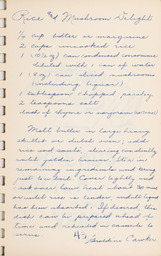 Rice and Mushroom Delight
1/4 cup butter or margarine
2 cups uncooked rice
1 (10 1/2 oz) can condensed consomme
diluted with 1 can of water
1 (4 oz) can sliced mushrooms
(including liquid)
1 tablespoon chopped parsley
2 teaspoons salt
dash of thyme or
Melt butter in large heavy
skillet or dutch oven; add
rice and sauté, stirring constantly
until golden brown. Stir in
remaining ingredients and bring
just to boil. Cover tightly and
cook over low heat about 30 min
or until rice is tender, until liquid
has been absorbed. If desired this
dish can be prepared ahead of
time and reheated in casserole to
serve.
45